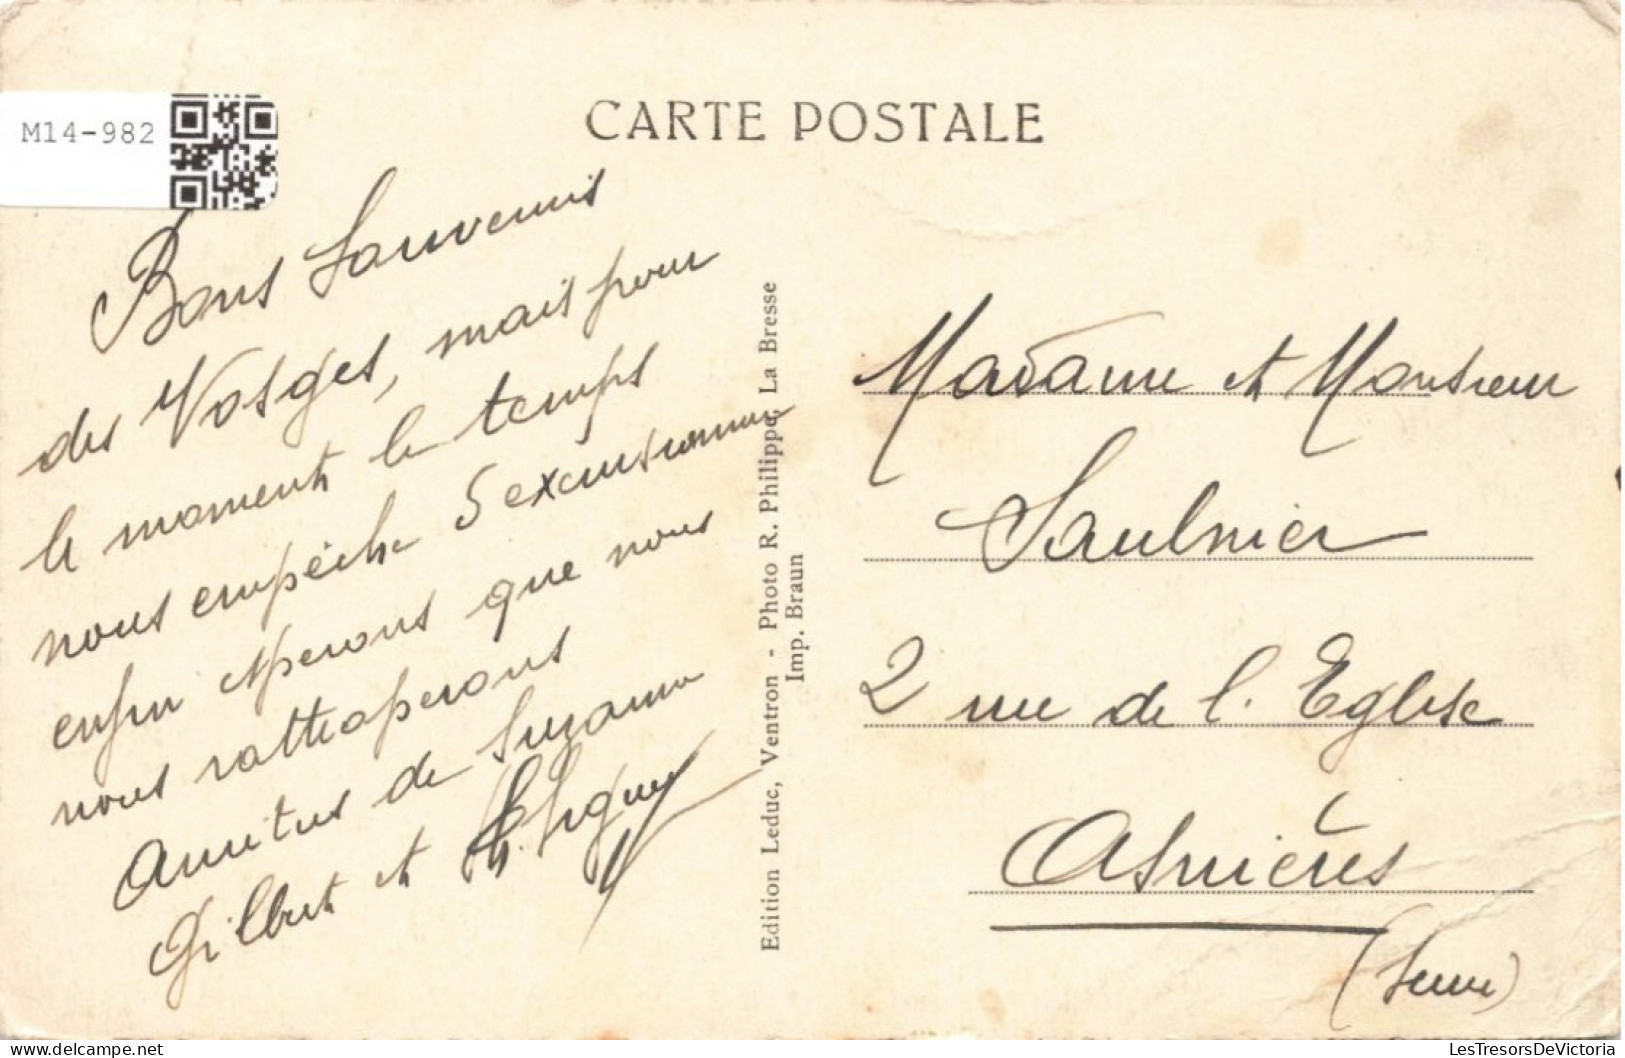 M14-982
CARTE POSTALE
Bons Souvenirs
des Vosges, mais pour
le moment le temps
nous empêche d'excursionner
enfin esperons que nous
nous rattraperons
Amitiés de Suzanne
Gilbert et
Edition Leduc, Ventron - Photo R. Philippe, La Bresse
Imp. Braun
Madame et Monsieur
Saulnier
2 rue de l'Eglise
Asnières
(Seine)
LesTresorsDeVictoria